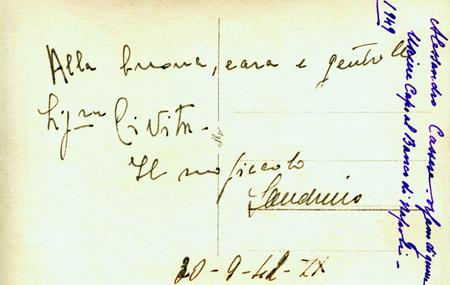 Alla buona, cara e gentile
Sig.ra Civita.
Il suo piccolo
Sandrino
30-9-42-XX
Alessandro Cassese
Usciere Capo al Banco di Napoli -
1949